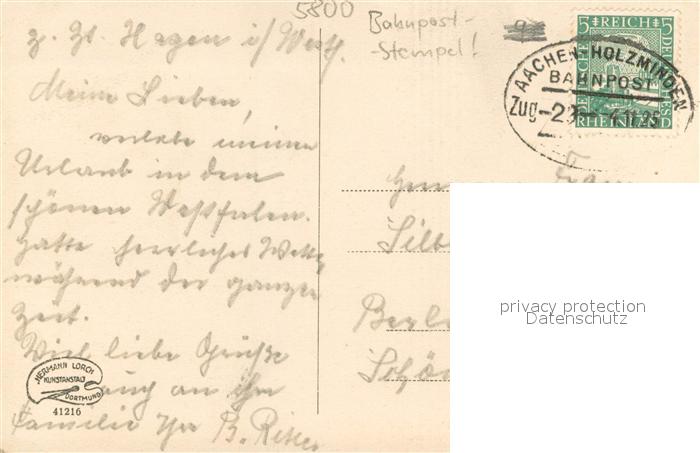 5800
Bahnpost-
-Stempel!
z. Zt. Hagen i/Westf.
Meine Lieben,
verlebe meinen
Urlaub in dem
schönen Westfalen.
Hatte herrliches Wetter
während der ganzen
Zeit.
Viel liebe Grüße
auch an Ihre
Familie Ihr B.
HERMANN LORCH
KUNSTANSTALT
DORTMUND
41216
5 REICH 5
DEUTSCHES
RHEINLAND
AACHEN-HOLZMINDEN
BAHNPOST
Zug
4.11.25
Silb
Berl
Schön
privacy protection
Datenschutz